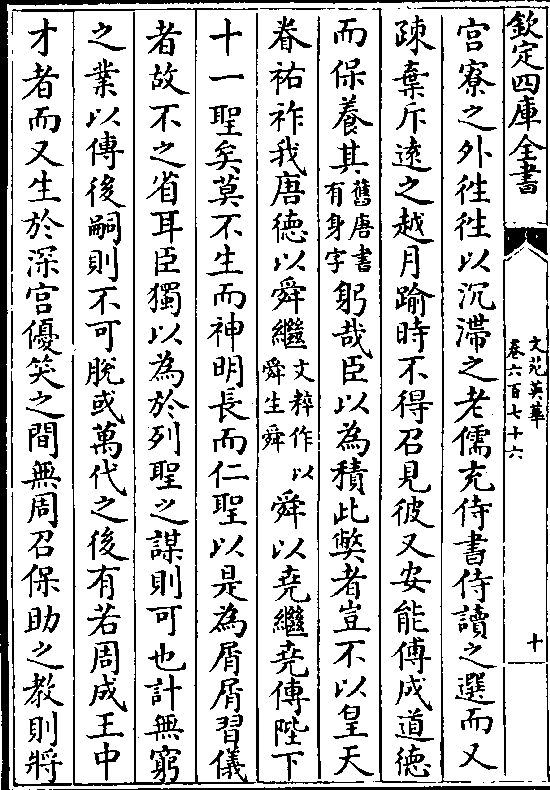 欽定四庫全書
文苑英華
卷六百七十六
十
宫寮之外徃徃以沉滯之老儒充侍書侍讀之選而又
踈棄斥遠之越月踰時不得召見彼又安能傅成道德
而保養其舊唐書有身字躬哉臣以為積此弊者豈不以皇天
眷祐祚我唐德以舜繼文粹作以舜生舜舜以堯繼堯傳陛下
十一聖矣莫不生而神明長而仁聖以是為屑屑習儀
者故不之省耳臣獨以為於列聖之謀則可也計無窮
之業以傳後嗣則不可脱或萬代之後有若周成王中
才者而又生於深宫優笑之間無周召保助之教則將